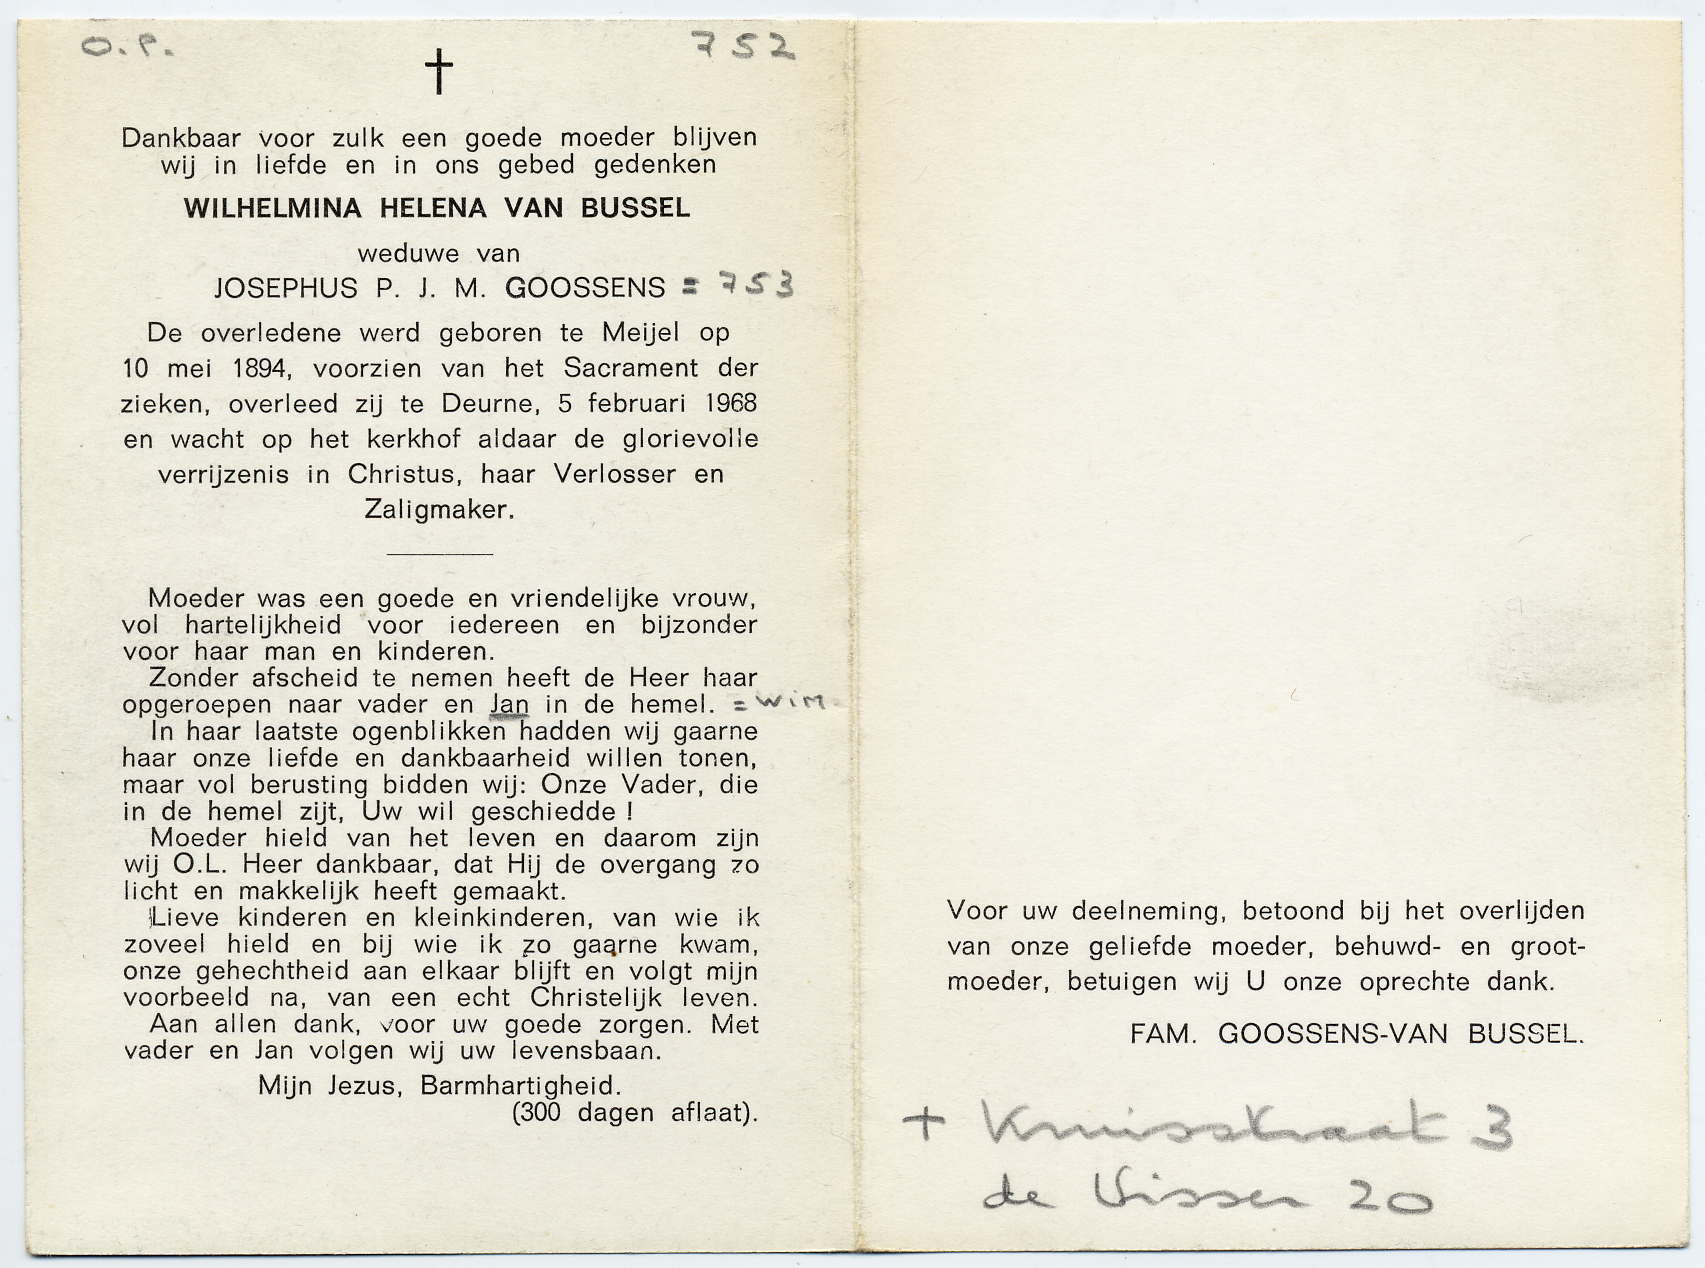 O.P. 752
Dankbaar voor zulk een goede moeder blijven
wij in liefde en in ons gebed gedenken
WILHELMINA HELENA VAN BUSSEL
weduwe van
JOSEPHUS P. J. M. GOOSSENS = 753
De overledene werd geboren te Meijel op
10 mei 1894, voorzien van het Sacrament der
zieken, overleed zij te Deurne, 5 februari 1968
en wacht op het kerkhof aldaar de glorievolle
verrijzenis in Christus, haar Verlosser en
Zaligmaker.
Moeder was een goede en vriendelijke vrouw,
vol hartelijkheid voor iedereen en bijzonder
voor haar man en kinderen.
Zonder afscheid te nemen heeft de Heer haar
opgeroepen naar vader en Jan in de hemel. = Wim
In haar laatste ogenblikken hadden wij gaarne
haar onze liefde en dankbaarheid willen tonen,
maar vol berusting bidden wij: Onze Vader, die
in de hemel zijt, Uw wil geschiedde !
Moeder hield van het leven en daarom zijn
wij O.L. Heer dankbaar, dat Hij de overgang zo
licht en makkelijk heeft gemaakt.
Lieve kinderen en kleinkinderen, van wie ik
zoveel hield en bij wie ik zo gaarne kwam,
onze gehechtheid aan elkaar blijft en volgt mijn
voorbeeld na, van een echt Christelijk leven.
Aan allen dank, voor uw goede zorgen. Met
vader en Jan volgen wij uw levensbaan.
Mijn Jezus, Barmhartigheid.
(300 dagen aflaat).
Voor uw deelneming, betoond bij het overlijden
van onze geliefde moeder, behuwd- en groot-
moeder, betuigen wij U onze oprechte dank.
FAM. GOOSSENS-VAN BUSSEL.
+ Kruisstraat 3
de Visser 20